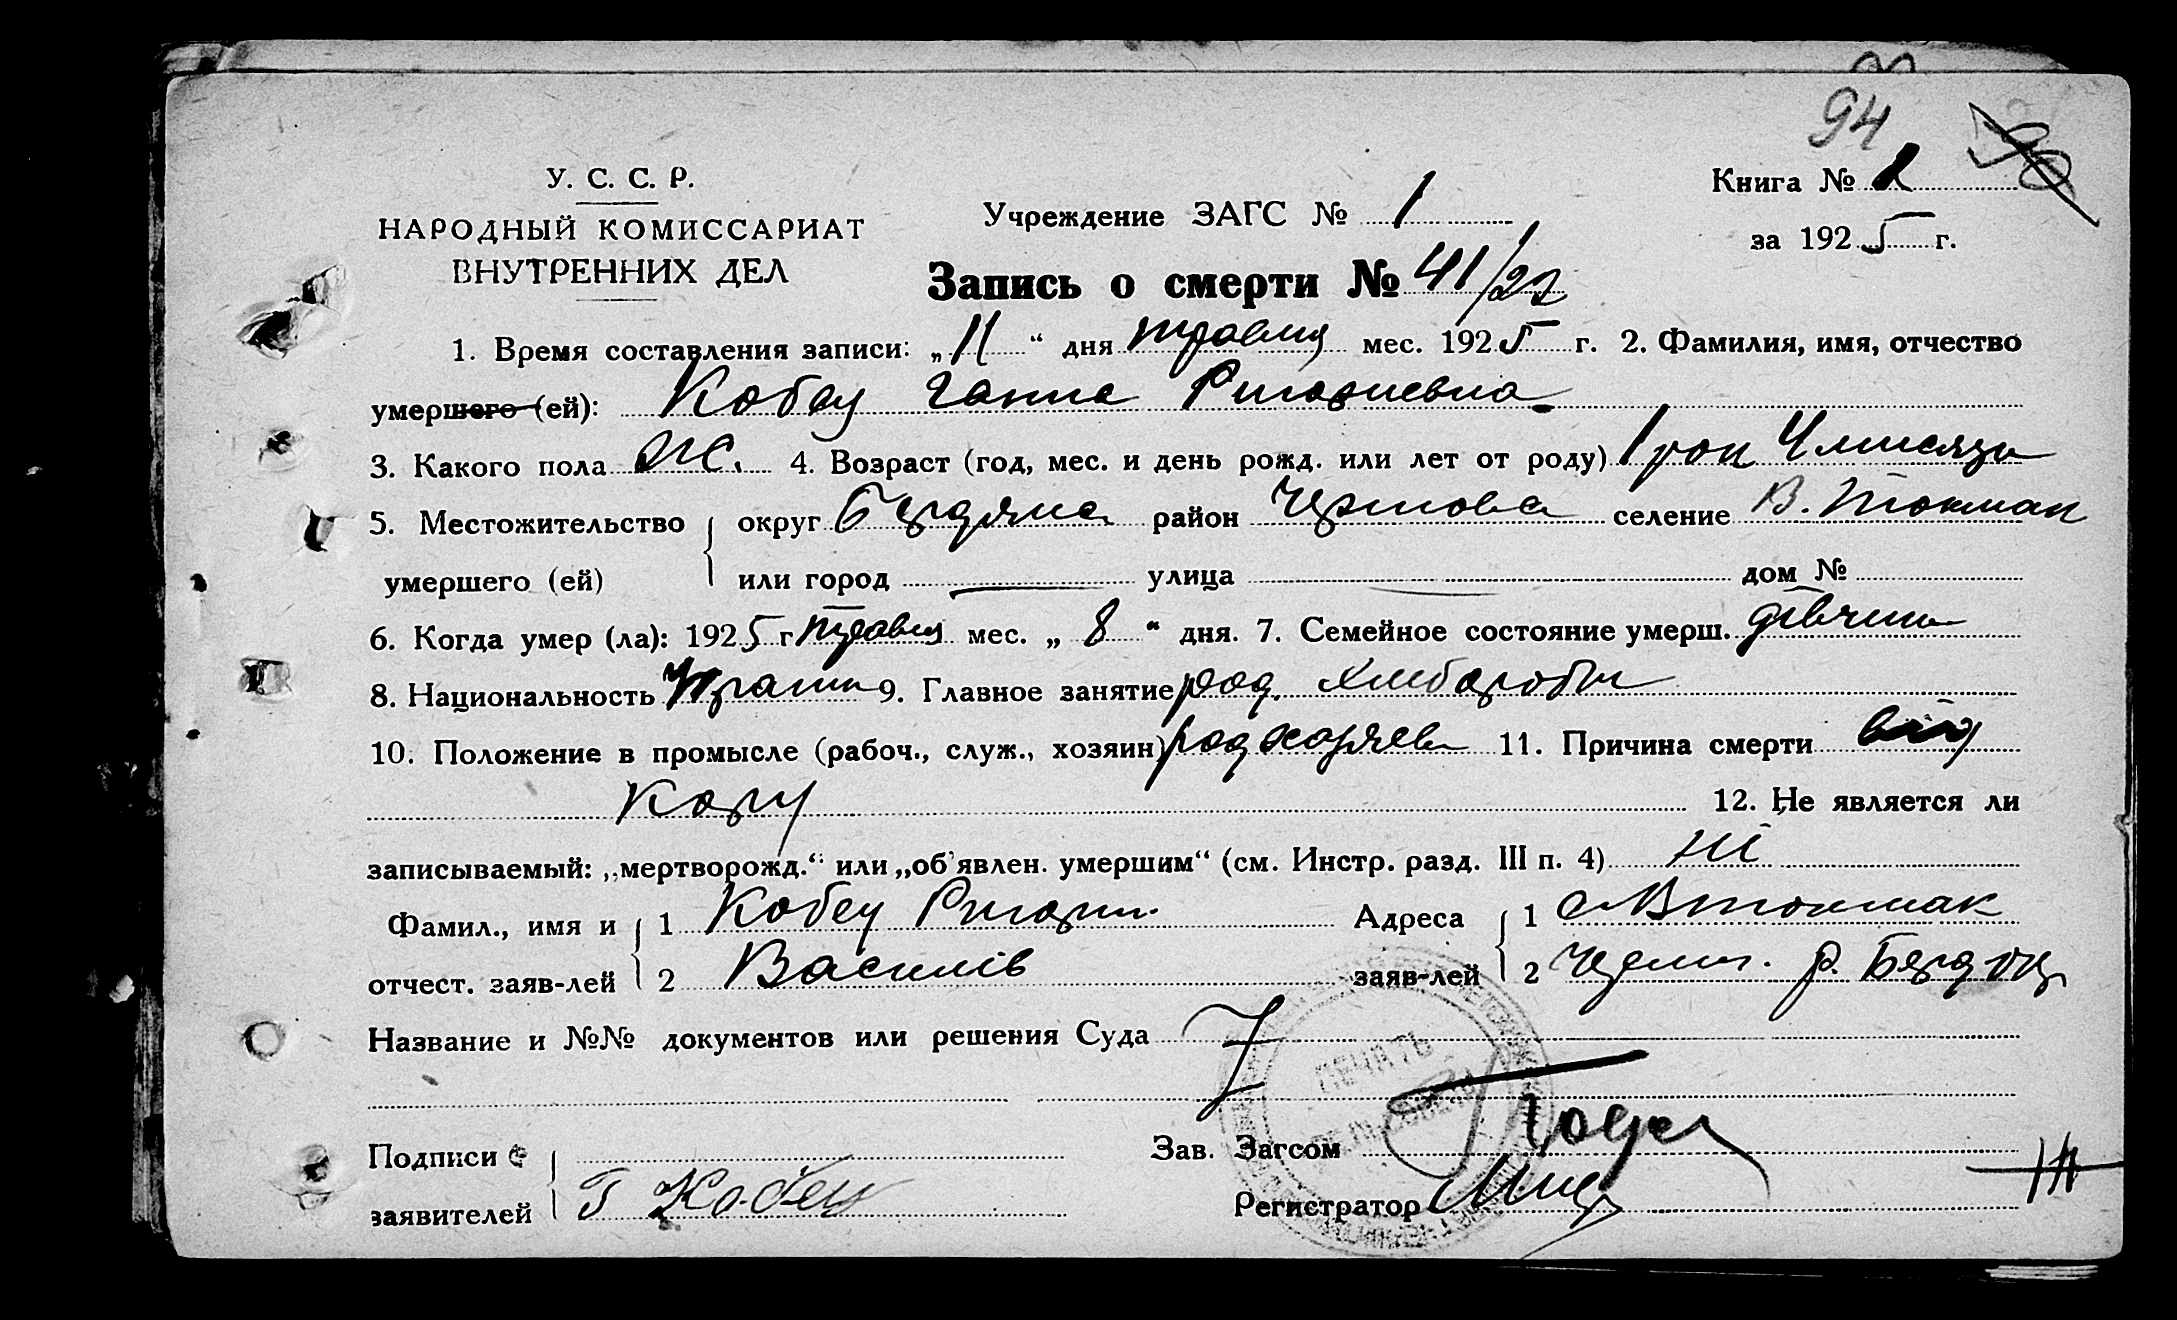 94
У. С. С. Р.
НАРОДНЫЙ КОМИССАРИАТ
ВНУТРЕННИХ ДЕЛ
Учреждение ЗАГС № 1
Книга № 2
за 1925 г.
Запись о смерти № 41/22
1. Время составления записи: „11“ дня травня мес. 1925 г. 2. Фамилия, имя, отчество
умершего (ей): Кобец Ганна Григориевна
3. Какого пола ж. 4. Возраст (год, мес. и день рожд. или лет от роду) 1 рок 4 місяци
5. Местожительство округ Бердянск район селение В. Токмак
умершего (ей) или город улица дом №
6. Когда умер (ла): 1925 г. травня мес. „8“ дня. 7. Семейное состояние умерш. дівчина
8. Национальность Украин 9. Главное занятие род. хлибороби
10. Положение в промысле (рабоч., служ., хозяин) род хозяева 11. Причина смерти від
кору
12. Не является ли
записываемый: „мертворожд.“ или „об'явлен. умершим“ (см. Инстр. разд. III п. 4) ні
Фамил., имя и 1 Кобец Григорий Адреса 1 с. В Токмак
отчест. заяв-лей 2 Василів заяв-лей 2 р. Бердянщ
Название и №№ документов или решения Суда
Подписи
заявителей Г Кобец
Зав. Загсом
Регистратор
ПЕЧАТЬ